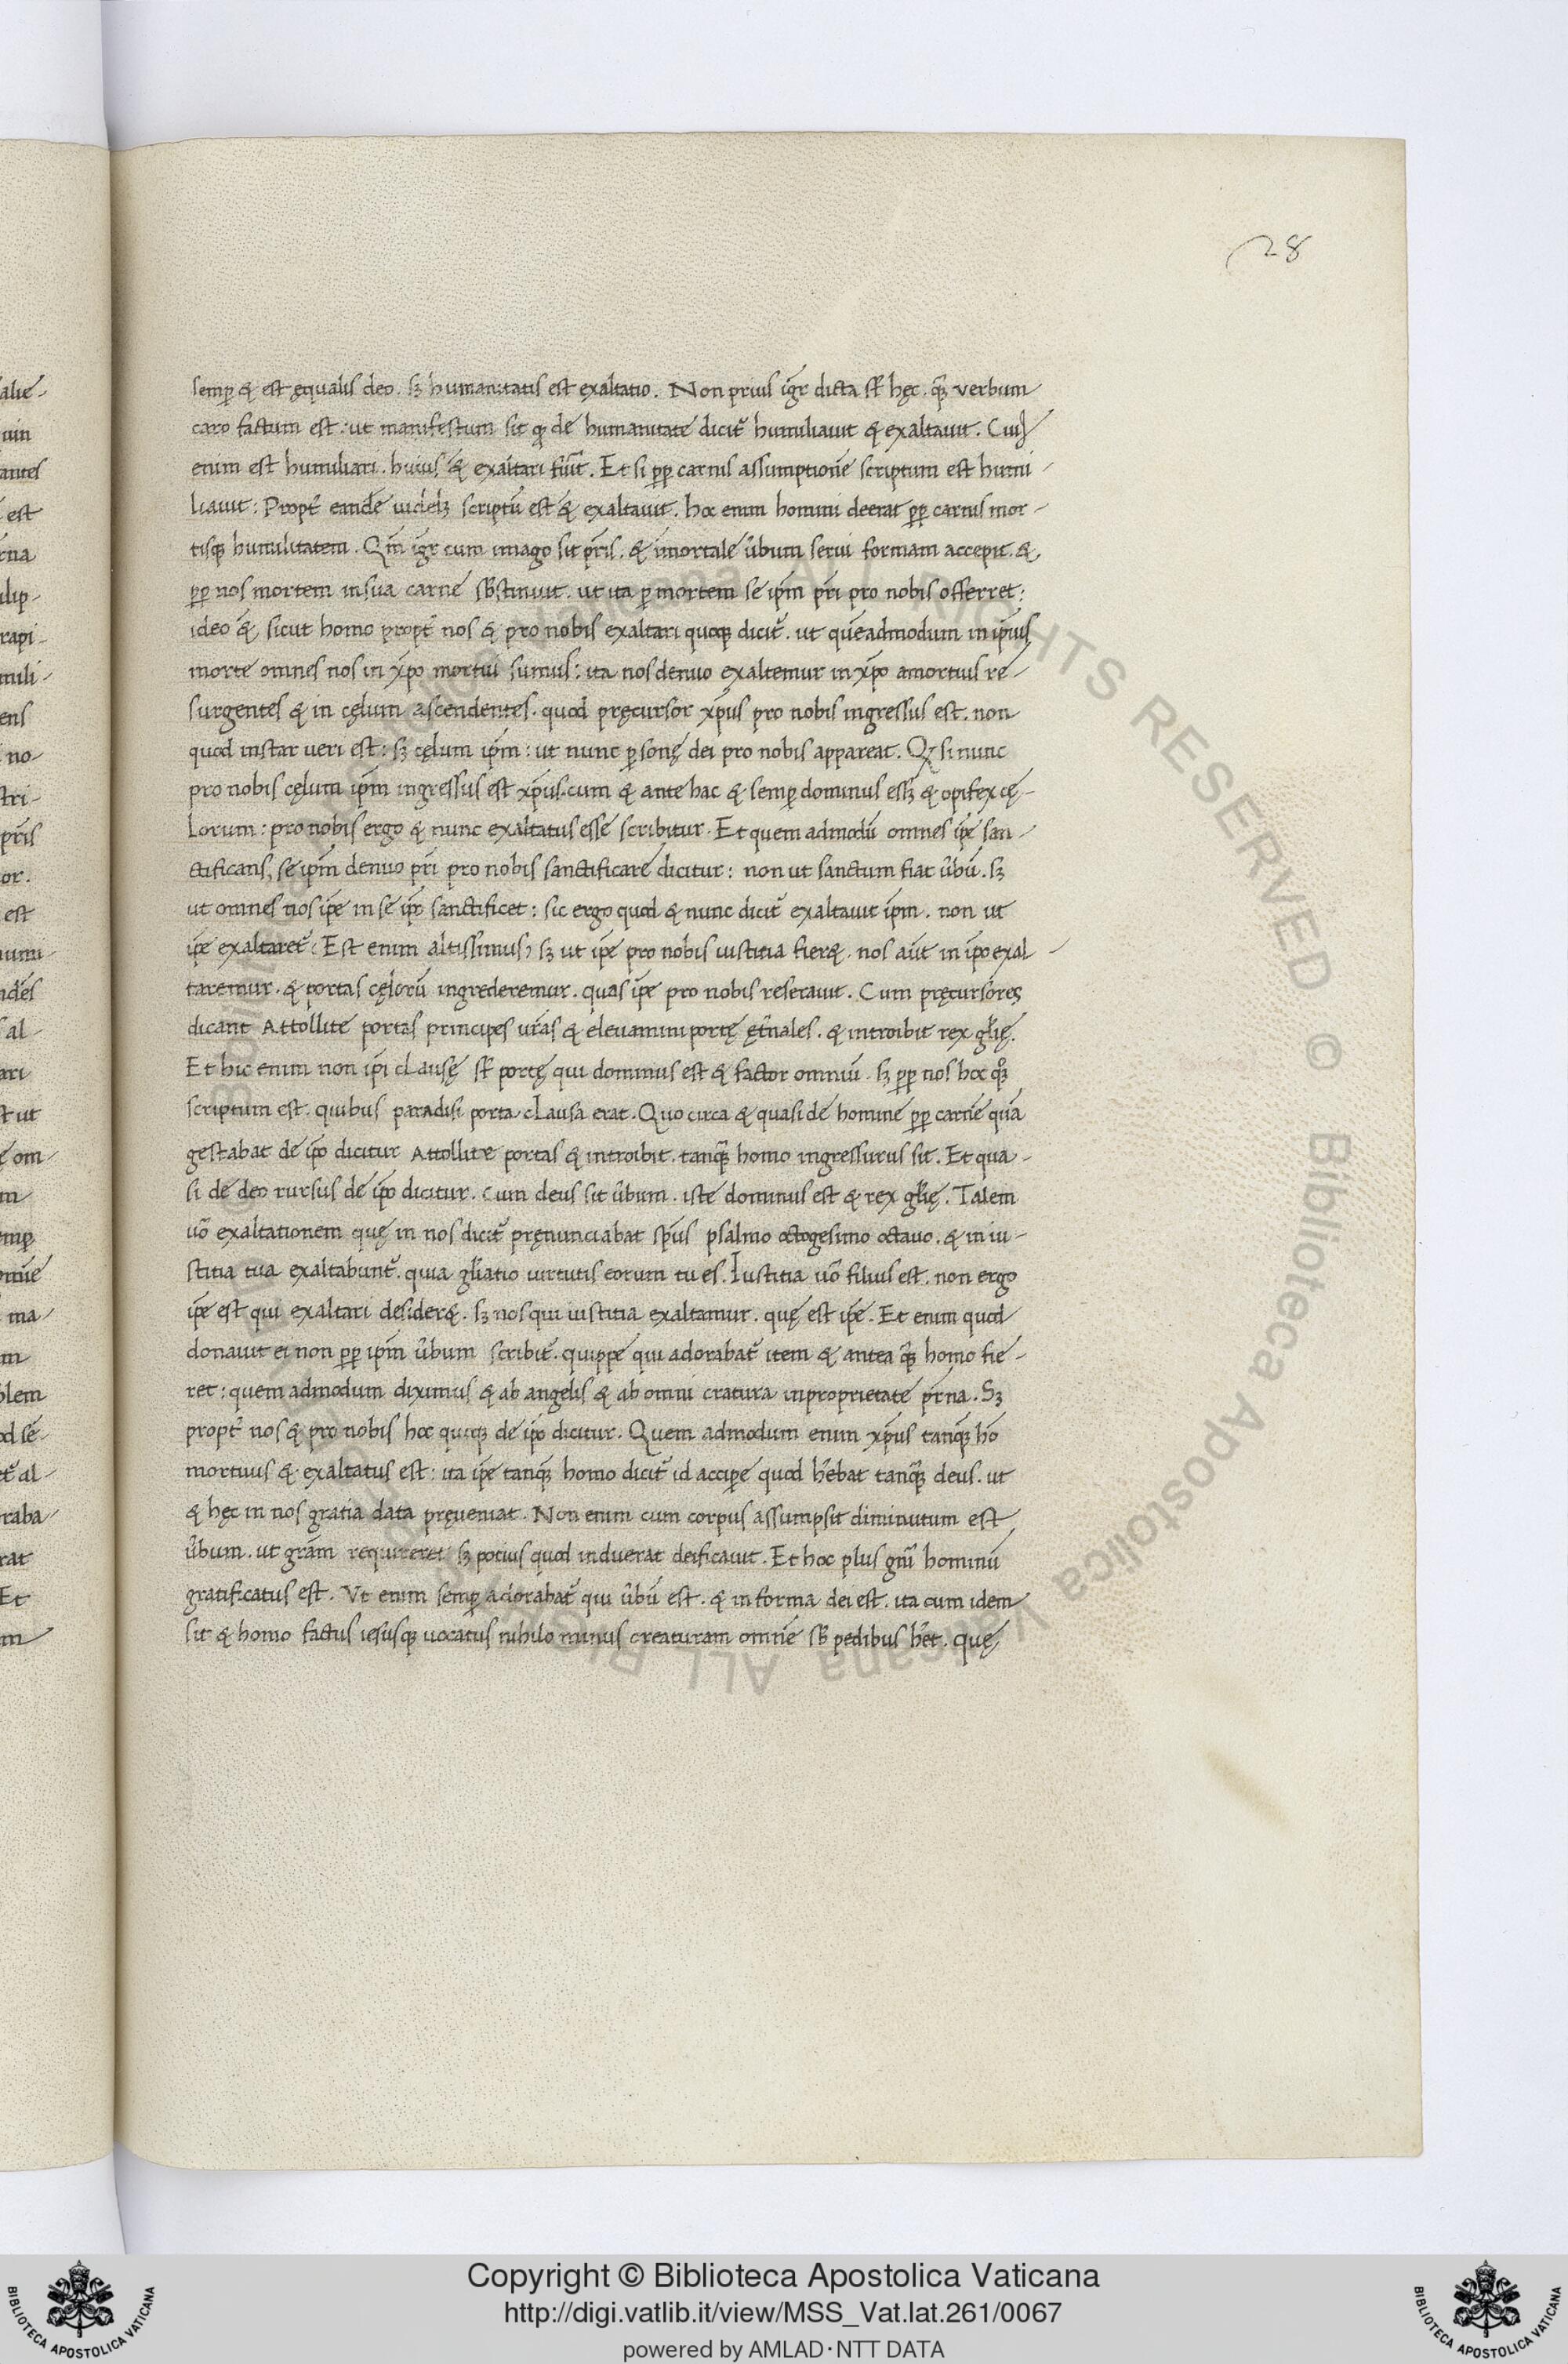 28
semꝑ & est ęqualis deo. sꝫ humanitatis est exaltatio. Non prius igr̄ dicta st̄ hęc. q̄ꝫ verbum
caro factum est: ut manifestum sit ꝙ de humanitate dicit᷑ humiliauit & exaltauit. Cuiꝰ
enim est humiliari. huius & exaltari fuit. Et si ꝓp carnis assumptionē scriptum est humi-
liauit: Propt̄ eandē uidelꝫ scriptū est & exaltauit. hoc enim homini deerat ꝓp carnis mor-
tisqꝫ humilitatem. Qm̄ igr̄ cum imago sit pr̄is. & imortale ūbum serui formam accepit. &
ꝓp nos mortem in sua carne sb̄stinuit. ut ita ꝑ mortem se ip̄m pr̄i pro nobis offerret:
ideo & sicut homo propt̄ nos & pro nobis exaltari quoqꝫ dicit᷑. ut quēadmodum in ip̄ius
morte omnes nos in xp̄o mortui sumus: ita nos denuo exaltemur in xp̄o amortuis re-
surgentes & in cęlum ascendentes. quod pręcursor xp̄us pro nobis ingressus est. non
quod instar ueri est: sꝫ cęlum ip̄m: ut nunc ꝑsonę dei pro nobis appareat. Qꝫ si nunc
pro nobis cęlum ip̄m ingressus est xp̄us. cum & ante hac & semꝑ dominus essꝫ & opifex cę-
lorum: pro nobis ergo & nunc exaltatus esse scribitur. Et quem admodū omnes ip̄e san-
ctificans, se ip̄m denuo pr̄i pro nobis sanctificare dicitur: non ut sanctum fiat ūbū. sꝫ
ut omnes nos ip̄e in se ip̄o sanctificet: sic ergo quod & nunc dicit᷑ exaltauit ip̄m. non ut
ip̄e exaltaret᷑ (Est enim altissimus) sꝫ ut ip̄e pro nobis iustitia fier&. nos aūt in ip̄o exal-
taremur. & portas cęlorū ingrederemur. quas ip̄e pro nobis reserauit. Cum pręcursores
dicant Attollite portas principes ur̄as & eleuamini portę ęt̄nales. & introibit rex gl̄ię.
Et hic enim non ip̄i clausę st̄ portę qui dominus est & factor omniū. sꝫ ꝓp nos hoc qꝫ
scriptum est. quibus paradisi porta clausa erat. Quo circa & quasi de homine ꝓp carnē quā
gestabat de ip̄o dicitur Attollite portas & introibit. tanq̄ꝫ homo ingressurus sit. Et qua-
si de deo rursus de ip̄o dicitur. cum deus sit ūbum. iste dominus est & rex gl̄ię. Talem
uō exaltationem quę in nos dicit᷑ pręnunciabat sp̄us psalmo octogesimo octauo. & in iu-
stitia tua exaltabunt᷑. quia gl̄iatio uirtutis eorum tu es. Iustitia uō filius est. non ergo
ip̄e est qui exaltari desider&. sꝫ nos qui iustitia exaltamur. quę est ip̄e. Et enim quod
donauit ei non ꝓp ip̄m ūbum scribit᷑. quippe qui adorabat᷑ item & antea q̄ꝫ homo fie-
ret: quem admodum diximus & ab angelis & ab omni cratura in proprietate pr̄na. Sꝫ
propt̄ nos & pro nobis hoc quoqꝫ de ip̄o dicitur. Quem admodum enim xp̄us tanq̄ꝫ hō
mortuus & exaltatus est: ita ip̄e tanq̄ꝫ homo dicit᷑ id acciꝑe quod hēbat tanq̄ꝫ deus. ut
& hęc in nos gratia data pręueniat. Non enim cum corpus assumpsit diminutum est
ūbum. ut grām requireret sꝫ potius quod induerat deificauit. Et hoc plus gn̄i hominū
gratificatus est. Vt enim semꝑ adorabat᷑ qui ūbū est. & in forma dei est. ita cum idem
sit & homo factus iesusqꝫ uocatus nihilo minus creaturam omnē sb̄ pedibus hēt. quę
Copyright © Biblioteca Apostolica Vaticana
http://digi.vatlib.it/view/MSS_Vat.lat.261/0067
powered by AMLAD·NTT DATA